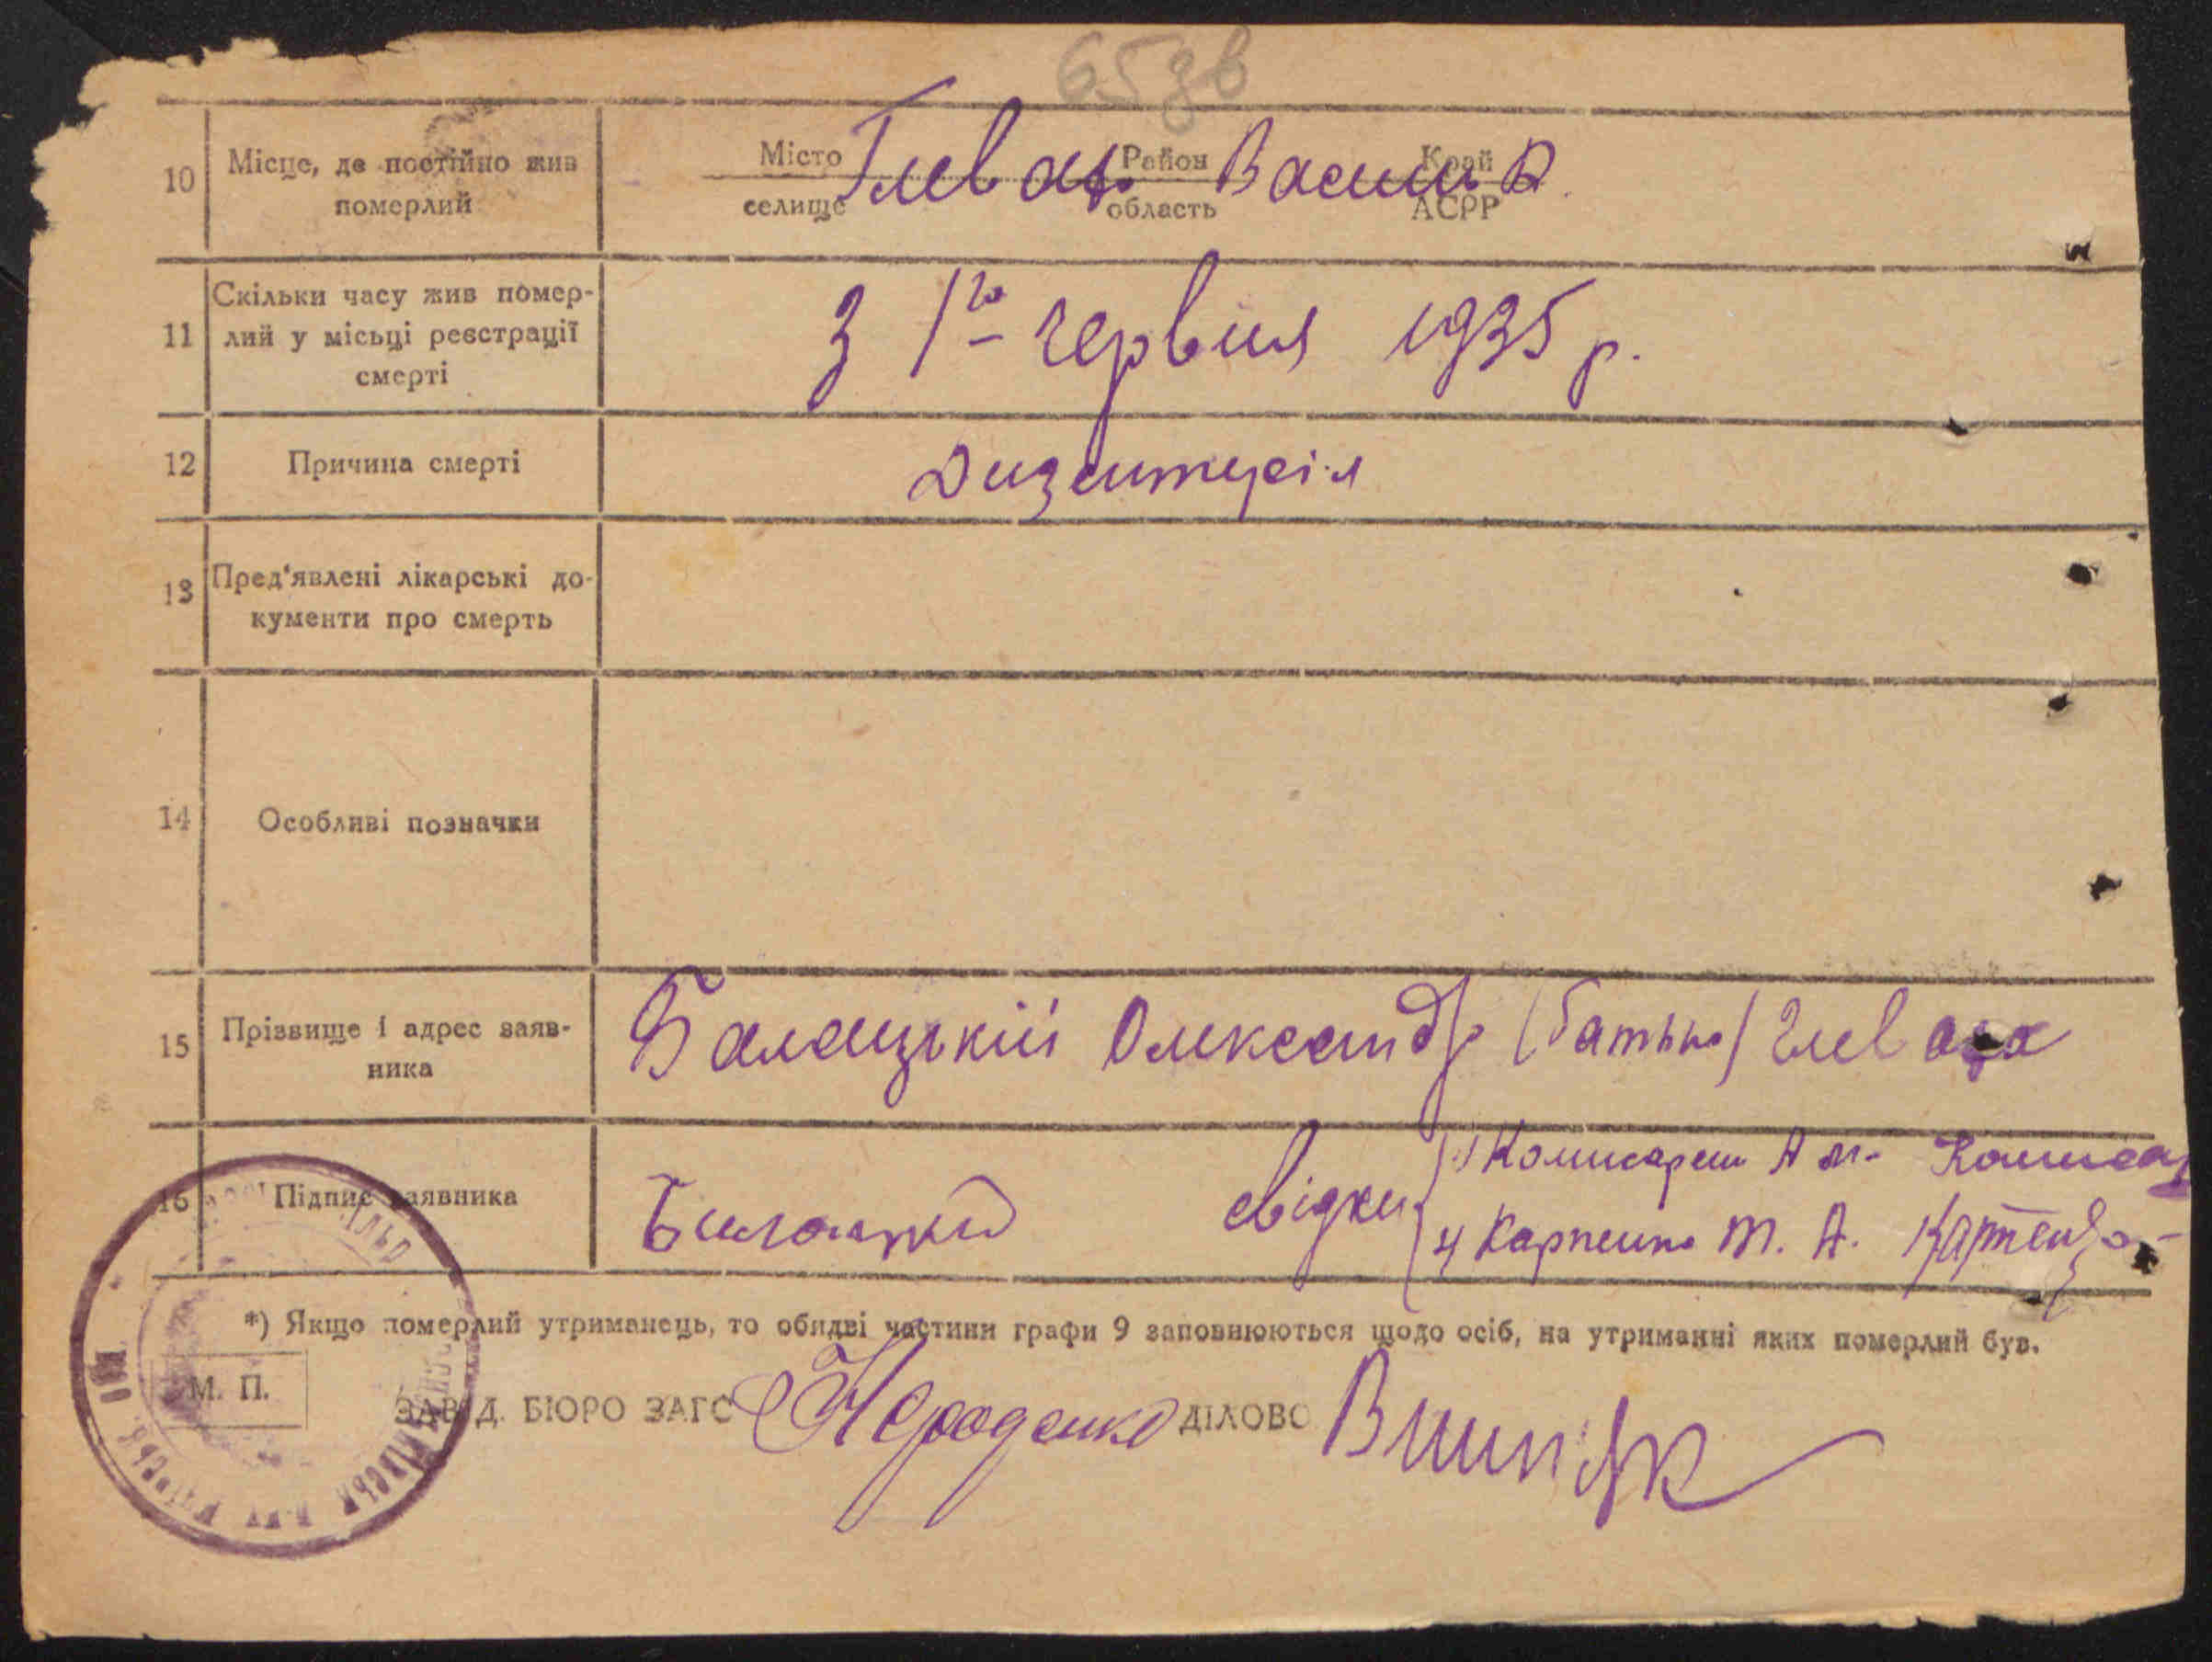 65зв
10 Місце, де постійно жив померлий
Місто селище Глеваха Район область Васильк Край АСРР
11 Скільки часу жив помер-
лий у місьці реєстрації
смерті
З 1го червня 1935 р.
12 Причина смерті
Дизентерія
13 Пред'явлені лікарські до-
кументи про смерть
14 Особливі позначки
15 Прізвище і адрес заяв-
ника
Балацький Олександр (батько) Глеваха
16 Підпис заявника
свідки
1) Комисарен А М-
2) Карпенко Т. А. Карпенко
*) Якщо померлий утриманець, то обидві частини графи 9 заповнюються щодо осіб, на утриманні яких померлий був.
М. П.
ЗАВІД. БЮРО ЗАГС Нероденко ДІЛОВО